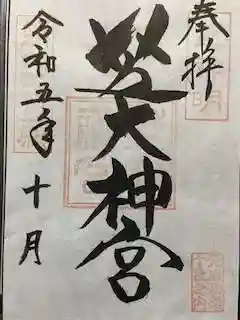 奉拝
芝大神宮
令和五年
十月